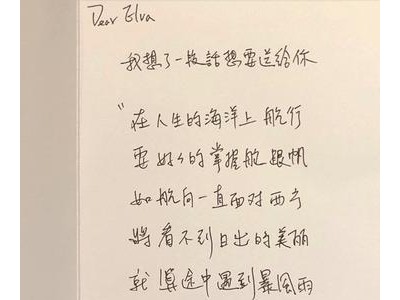 Dear Elva
我想了一段話想要送给你
"在人生的海洋上航行
要好好的掌握舵跟帆
如航向一直面对西方
將看不到日出的美丽
就算途中遇到暴風雨